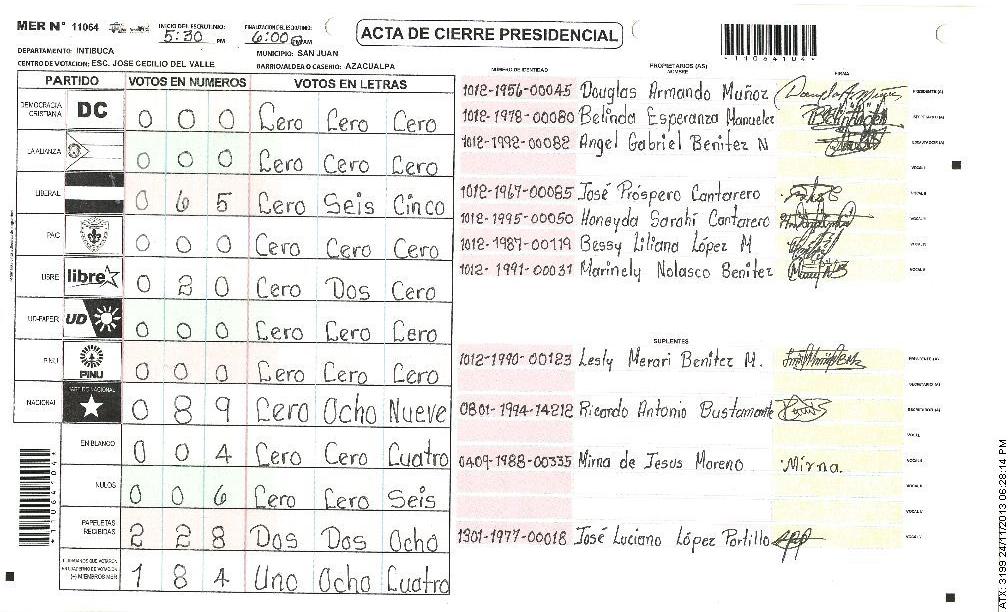 MER N° 11064
INICIO DEL ESCRUTINIO: 5:30 PM
FINALIZACION DEL ESCRUTINIO: 6:00
ACTA DE CIERRE PRESIDENCIAL
DEPARTAMENTO: INTIBUCA
MUNICIPIO: SAN JUAN
CENTRO DE VOTACION: ESC. JOSE CECILIO DEL VALLE
BARRIO/ALDEA O CASERIO: AZACUALPA
*11064104*
PARTIDO VOTOS EN NUMEROS VOTOS EN LETRAS
DEMOCRACIA CRISTIANA DC 0 0 0 Cero Cero Cero
LA ALIANZA 0 0 0 Cero Cero Cero
LIBERAL 0 6 5 Cero Seis Cinco
PAC 0 0 0 Cero Cero Cero
LIBRE libre 0 2 0 Cero Dos Cero
UD-FAPER UD 0 0 0 Cero Cero Cero
PINU PINU 0 0 0 Cero Cero Cero
NACIONAL 0 8 9 Cero Ocho Nueve
EN BLANCO 0 0 4 Cero Cero Cuatro
NULOS 0 0 6 Cero Cero Seis
PAPELETAS RECIBIDAS 2 2 8 Dos Dos Ocho
1 8 4 Uno Ocho Cuatro
(+) MIEMBROS MER
NUMERO DE IDENTIDAD PROPIETARIOS (AS) NOMBRE FIRMA
1012-1956-00045 Douglas Armando Muñoz PRESIDENTE (A)
1012-1978-00080 Belinda Esperanza Manueles SECRETARIO (A)
1012-1992-00082 Angel Gabriel Benitez N ESCRUTADOR (A)
VOCAL I
1012-1967-00085 José Próspero Cantarero
1012-1995-00050 Honeyda Sarahí Cantarero
1012-1987-00119 Bessy Liliana López M
1012-1991-00031 Marinely Nolasco Benitez
SUPLENTES
1012-1990-00123 Lesly Merari Benitez M. PRESIDENTE (A)
SECRETARIO (A)
0801-1994-14212 Ricardo Antonio Bustamante
0409-1988-00335 Mirna de Jesus Moreno Mirna.
1301-1977-00018 José Luciano López Portillo
*11064104*
ATX: 3199 24/11/2013 06:28:14 PM